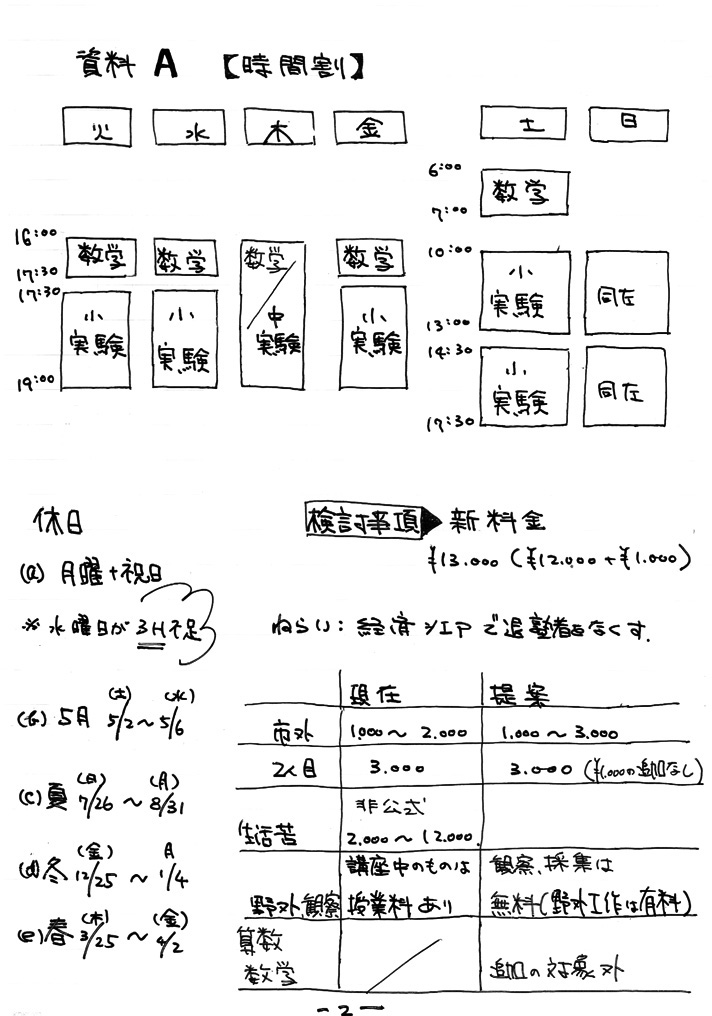 資料 A 【時間割】
火 水 木 金 土 日
6:00
数学
7:00
16:00
数学 数学 数学 数学
17:30
17:30
小実験 小実験 中実験 小実験
19:00
10:00
小実験 同左
13:00
14:30
小実験 同左
17:30
休日
検討事項 新料金
¥13.000 (¥12.000 + ¥1.000)
(a) 月曜+祝日
※水曜日が3H不足
ねらい: 経済シェアで退塾者をなくす.
(b) 5月 (土) 5/2 〜 (水) 5/6
(c) 夏 (日) 7/26 〜 (月) 8/31
(d) 冬 (金) 12/25 〜 月 1/4
(e) 春 (木) 3/25 〜 (金) 4/2
現在 提案
市外 1.000〜2.000 1.000〜3.000
2人目 3.000 3.000 (¥1.000の追加なし)
生活苦 非公式 2.000〜12.000.
野外、観察 講座中のものは授業料あり 観察、採集は無料(野外工作は有料)
算数
数学 追加の対象外
-2-